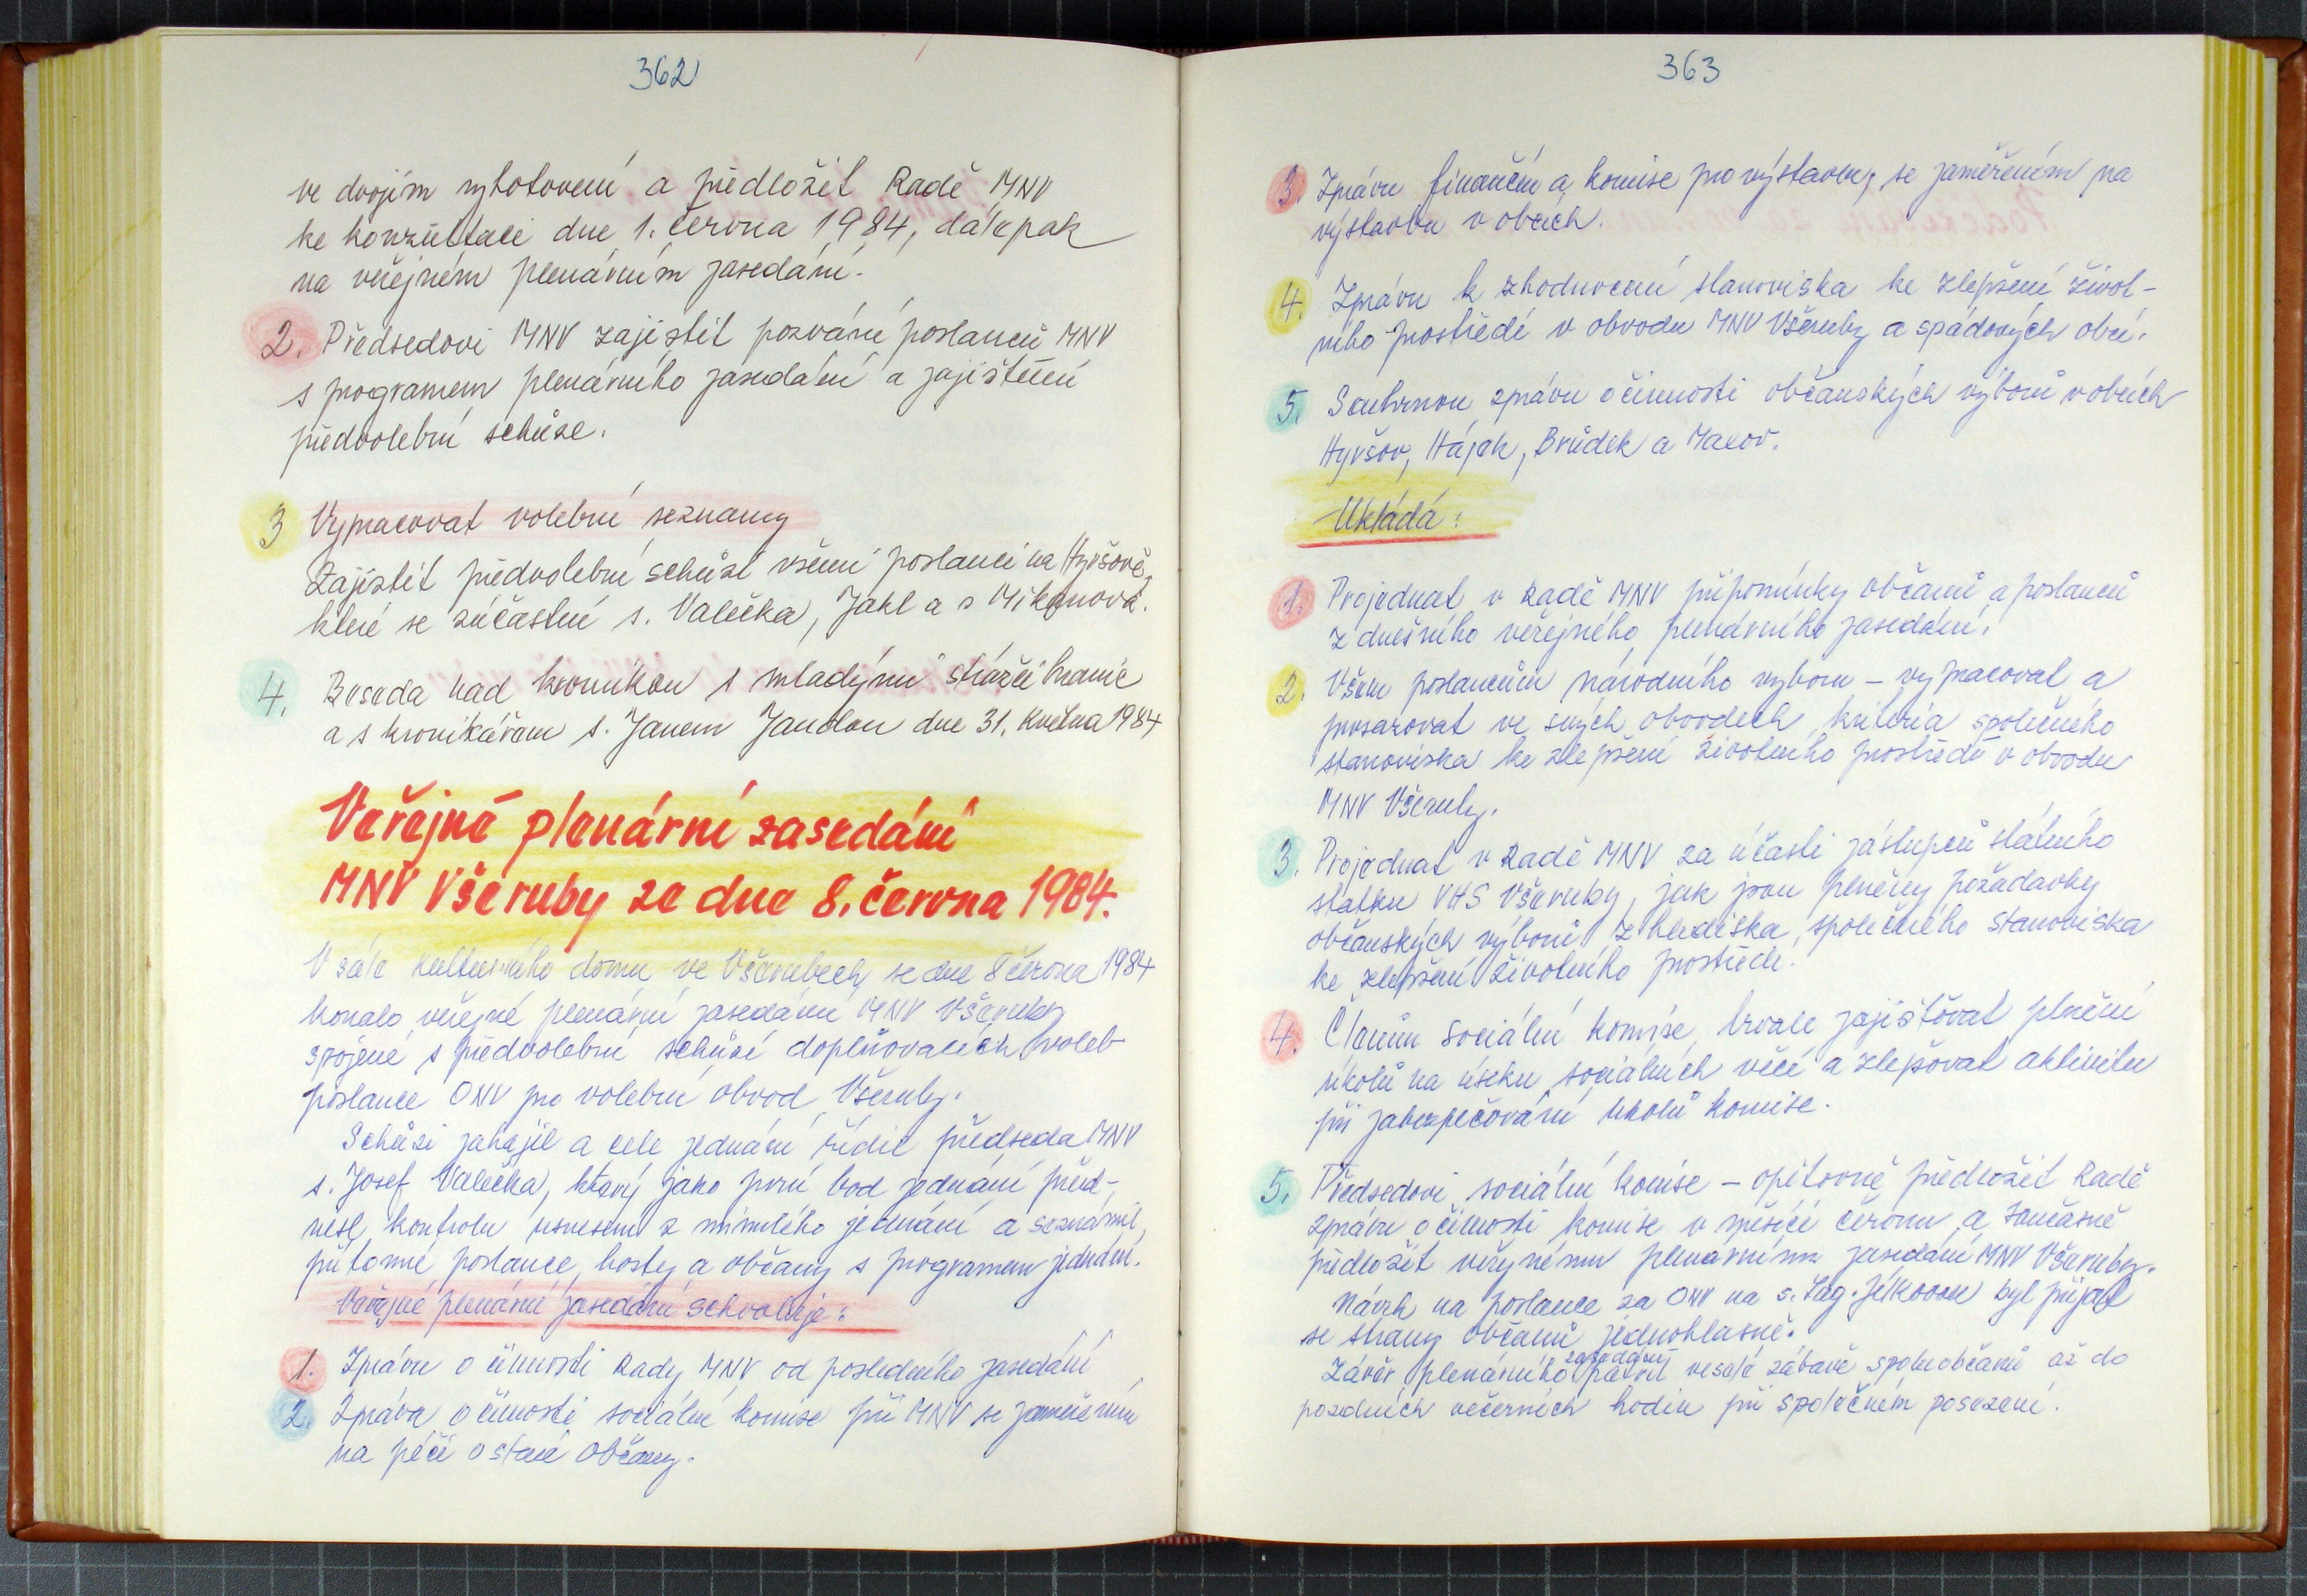 362
ve dvojím vyhotovení a předložit Radě MNV
ke konzultaci dne 1. června 1984, dále pak
na veřejném plenárním zasedání.
2. Předsedovi MNV zajistit pozvání poslanců MNV
s programem plenárního zasedání a zajištění
předvolební schůze.
3 Vypracovat volební seznamy
Zajistit předvolební schůzi všemi poslanci na Hyršově,
které se zúčastní s. Valečka, Jakl a s
4. Beseda nad kronikou s mladými strážci hranic
a s kronikářem s. Janem Jandlou dne 31. května 1984
Veřejné plenární zasedání
MNV Všeruby ze dne 8. června 1984.
V sále kulturního domu ve Všerubech se dne 8 června 1984
konalo veřejné plenární zasedání MNV Všeruby
spojené s předvolební schůzí doplňovacích voleb
poslance ONV pro volební obvod Všeruby.
Schůzi zahájil a cele jednání řídil předseda MNV
s. Josef Valečka, který jako první bod jednání před-
nesl kontrolu usnesení z minulého jednání a seznámil
přítomné poslance, hosty a občany s programem jednání.
Veřejné plenární zasedání schvaluje:
1. Zprávu o činnosti Rady MNV od posledního zasedání
2. Zpráva o činnosti sociální komise při MNV se zaměřením
na péči o staré občany.
363
3. Zprávu finanční a komise pro výstavbu, se zaměřením na
výstavbu v obcích.
4. Zprávu k zhodnocení stanoviska ke zlepšení život-
ního prostředí v obvodu MNV Všeruby a spádových obcí.
5. Souhrnou zprávu o činnosti občanských výborů v obcích
Hyršov, Hájek, Brůdek a Maxov.
Ukládá:
1. Projednat v Radě MNV připomínky občanů a poslanců
z dnešního veřejného plenárního zasedání.
2. Všem poslancům národního výboru - vypracovat a
prosazovat ve svých obvodech kriteria společného
stanoviska ke zlepšení životního prostředí v obvodu
MNV Všeruby.
3. Projednat v Radě MNV za účasti zástupců státního
statku VHS Všeruby, jak jsou plněny požadavky
občanských výborů z hlediska společného stanoviska
ke zlepšení životního prostředí.
4. Členům sociální komise trvale zajišťovat plnění
úkolů na úseku sociálních věcí a zlepšovat aktivitu
při zabezpečování úkolů komise.
5. Předsedovi sociální komise - opětovně předložit Radě
zprávu o činnosti komise v měsíci červnu a současně
předložit veřejnému plenárnímu zasedání MNV Všeruby.
Návrh na poslance za ONV na s. Ing. Jílkovou byl přijat
se strany občanů jednohlasně.
zasedání
Závěr plenárního patřil veselé zábavě spoluobčanů až do
pozdních večerních hodin při společném posezení.